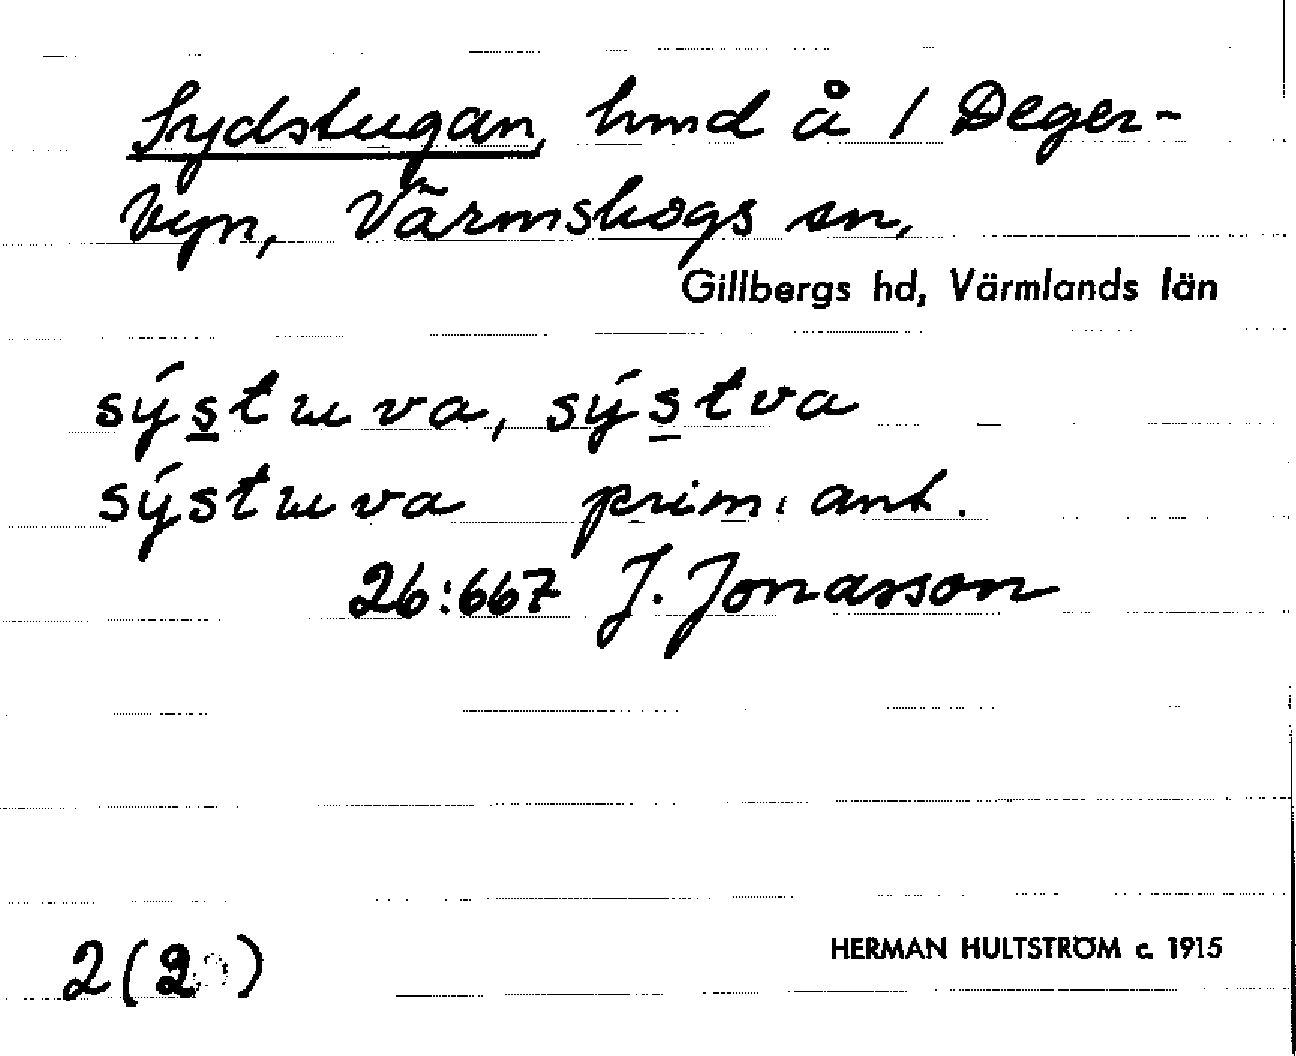 Sydstugan, hmd å 1 Deger-
byn, Värmskogs sn,
Gillbergs hd, Värmlands län
sýs̲tɯva, sýs̲tva
sýstɯva prim. ant.
26:667 J. Jonasson
2(2)
HERMAN HULTSTRÖM c. 1915